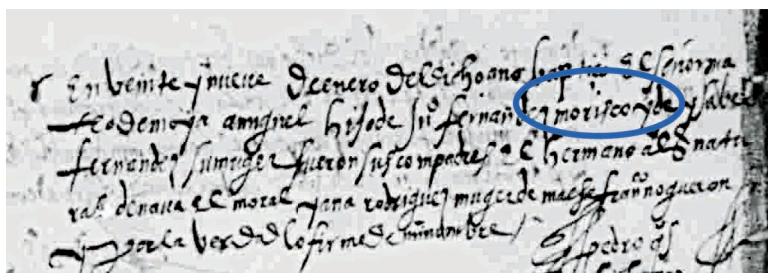 En veinte y nueve de enero del dicho año bautizo el señor ma
teo de moya a miguel hijo de juº fernandez morisco y de ysabel
fernandez su muger fueron sus compadres el hermano
ral de nava el moral y ana rodriguez muger de
y por la verdad lo firme de mi nombre
pedro